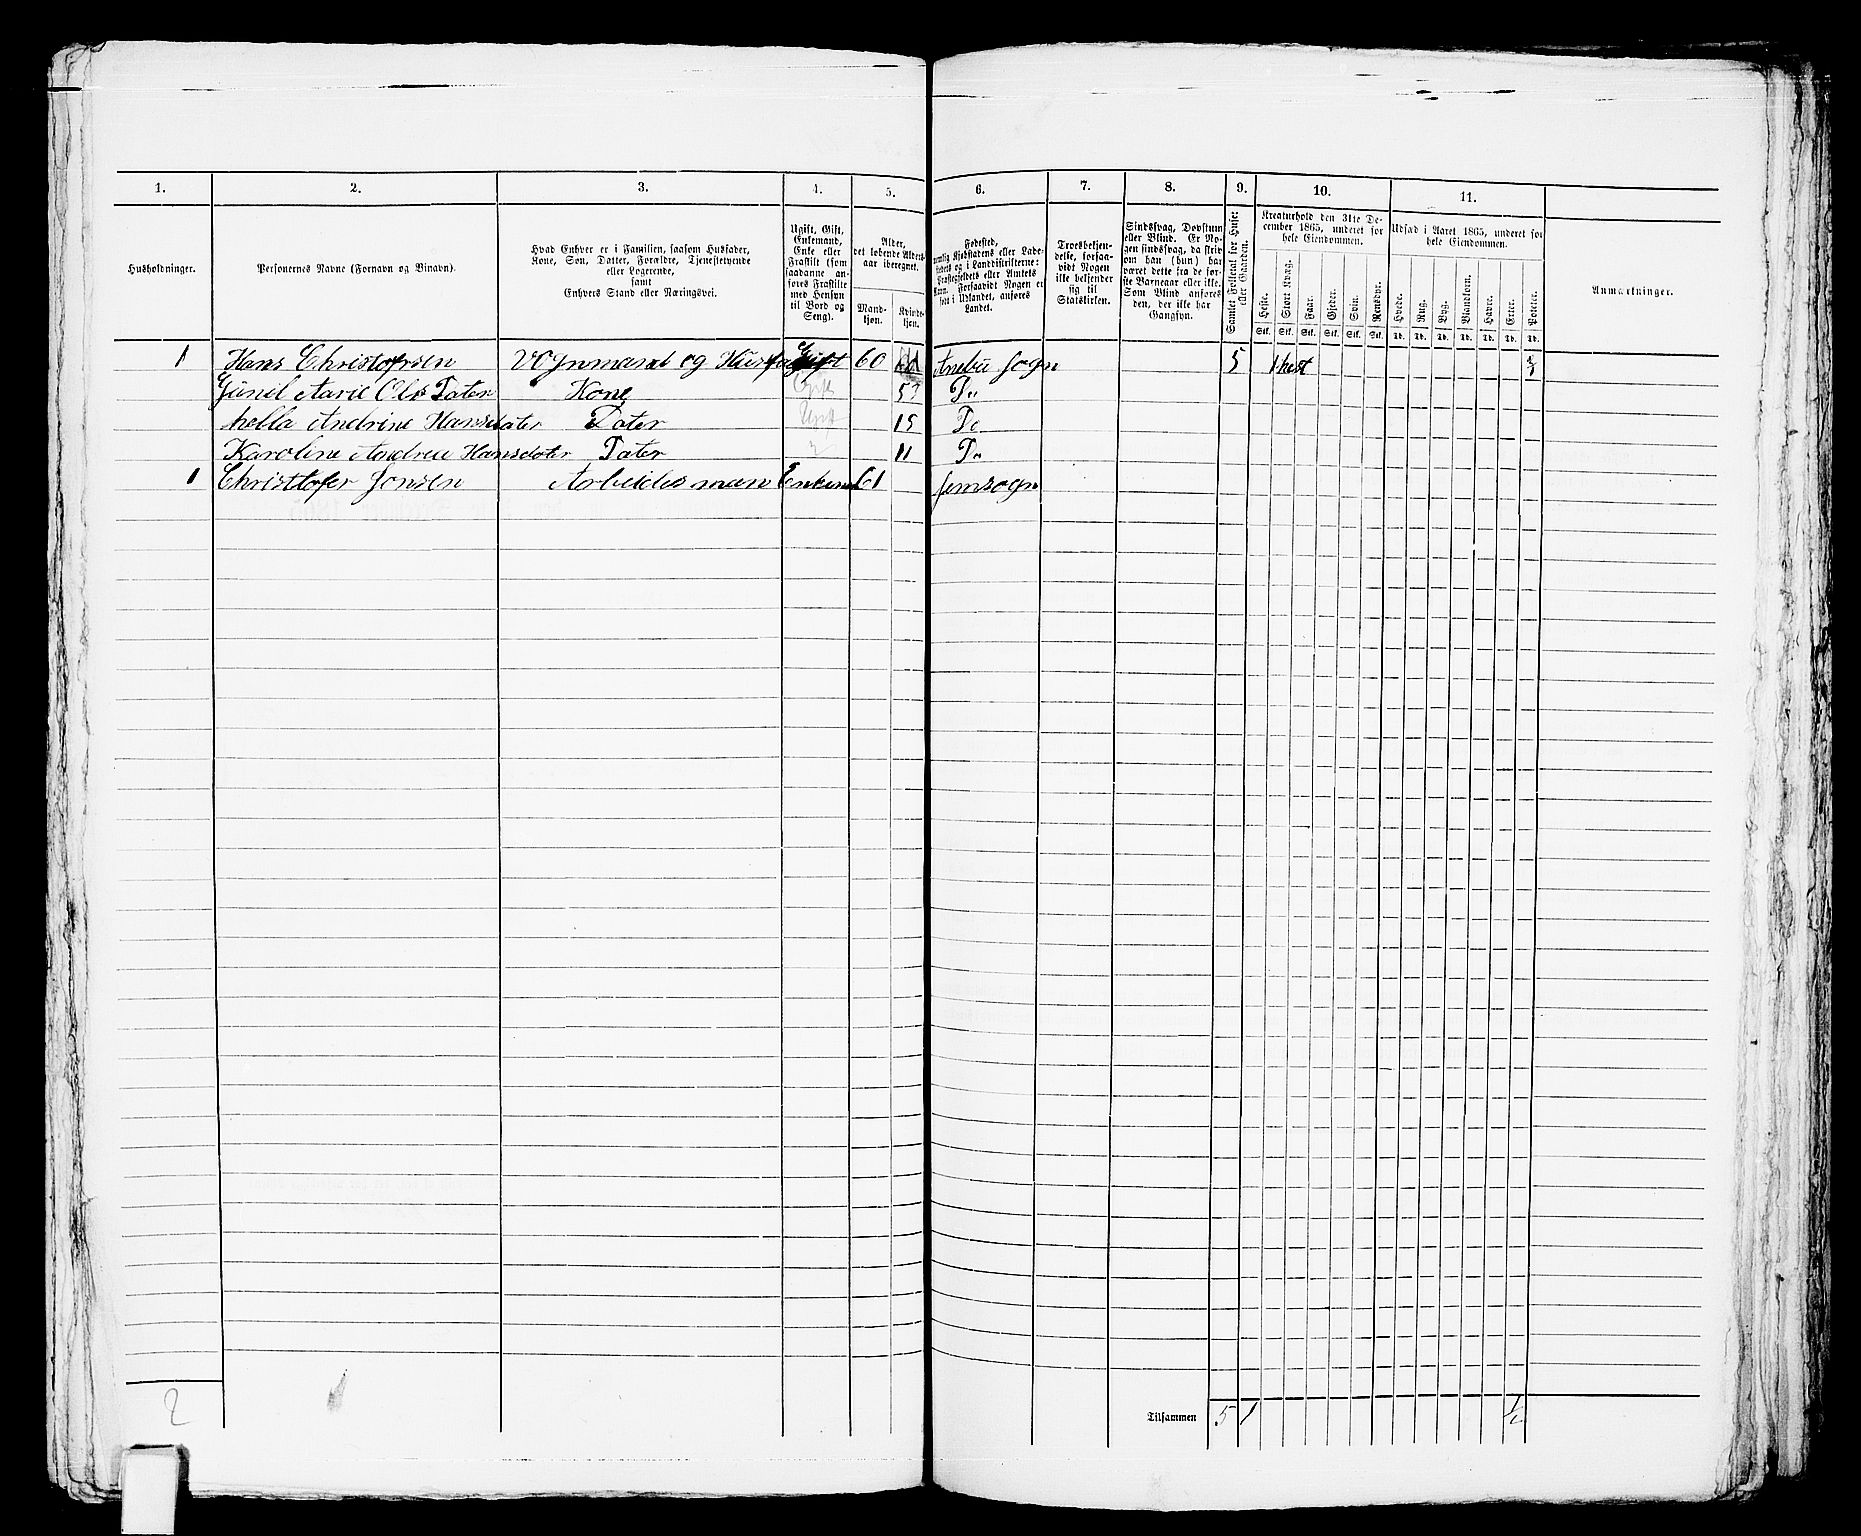 1. 2. 3. 4. 5. 6. 7. 8. 9. 10. 11.
Husholdninger.
Personernes Navne (Fornavn og Binavn).
Hvad Enhver er i Familien, saasom Husfader,
Kone, Søn, Datter, Forældre, Tjenestetyende
eller Logerende,
samt
Enhvers Stand eller Næringsvei.
Ugift, Gift,
Enkemand,
Enke eller
Fraskilt (som
saadanne an-
føres Fraskilte
med Hensyn
til Bord og
Seng).
Alder,
det løbende Alders-
aar iberegnet.
Mand-
kjøn.
Kvinde-
kjøn.
Fødested,
nemlig Kjøbstadens eller Lade-
stedets og i Landdistrikterne:
Præstegjeldets eller Amtets
Navn. Forsaavidt Nogen er
født i Udlandet, anføres
Landet.
Troesbekjen-
delse, forsaa-
vidt Nogen
ikke bekjender
sig til
Statskirken.
Sindssvag, Døvstum
eller Blind. Er No-
gen sindssvag, da skriv
om han (hun) har
været dette fra de før-
ste Barneaar eller ikke.
Som Blind anføres
den, der ikke har
Gangsyn.
Samlet Folketal for Huset
eller Gaarden.
Kreaturhold den 31te De-
cember 1865, underet for
hele Eiendommen.
Heste. Stort Kvæg. Faar. Gjeder. Svin. Rensdyr.
Stk. Stk. Stk. Stk. Stk. Stk.
Udsæd i Aaret 1865, underet for
hele Eiendommen.
Hvede. Rug. Byg. Blandkorn. Havre. Erter. Poteter.
Td. Td. Td. Td. Td. Td. Td.
Anmærkninger.
1 Hans Christofrsen Gift 60 Anebu sogn 5 1 hest ½
Kone Gift 53 Do
Hella Andrine Hansdater Dater Ugift 15 Do
Karoline Andrea Hansdoter Dater 11 Do
1 Christtofer Jonsen Arbeidesman 61 semsogn
Tilsammen 5 1 ½
2